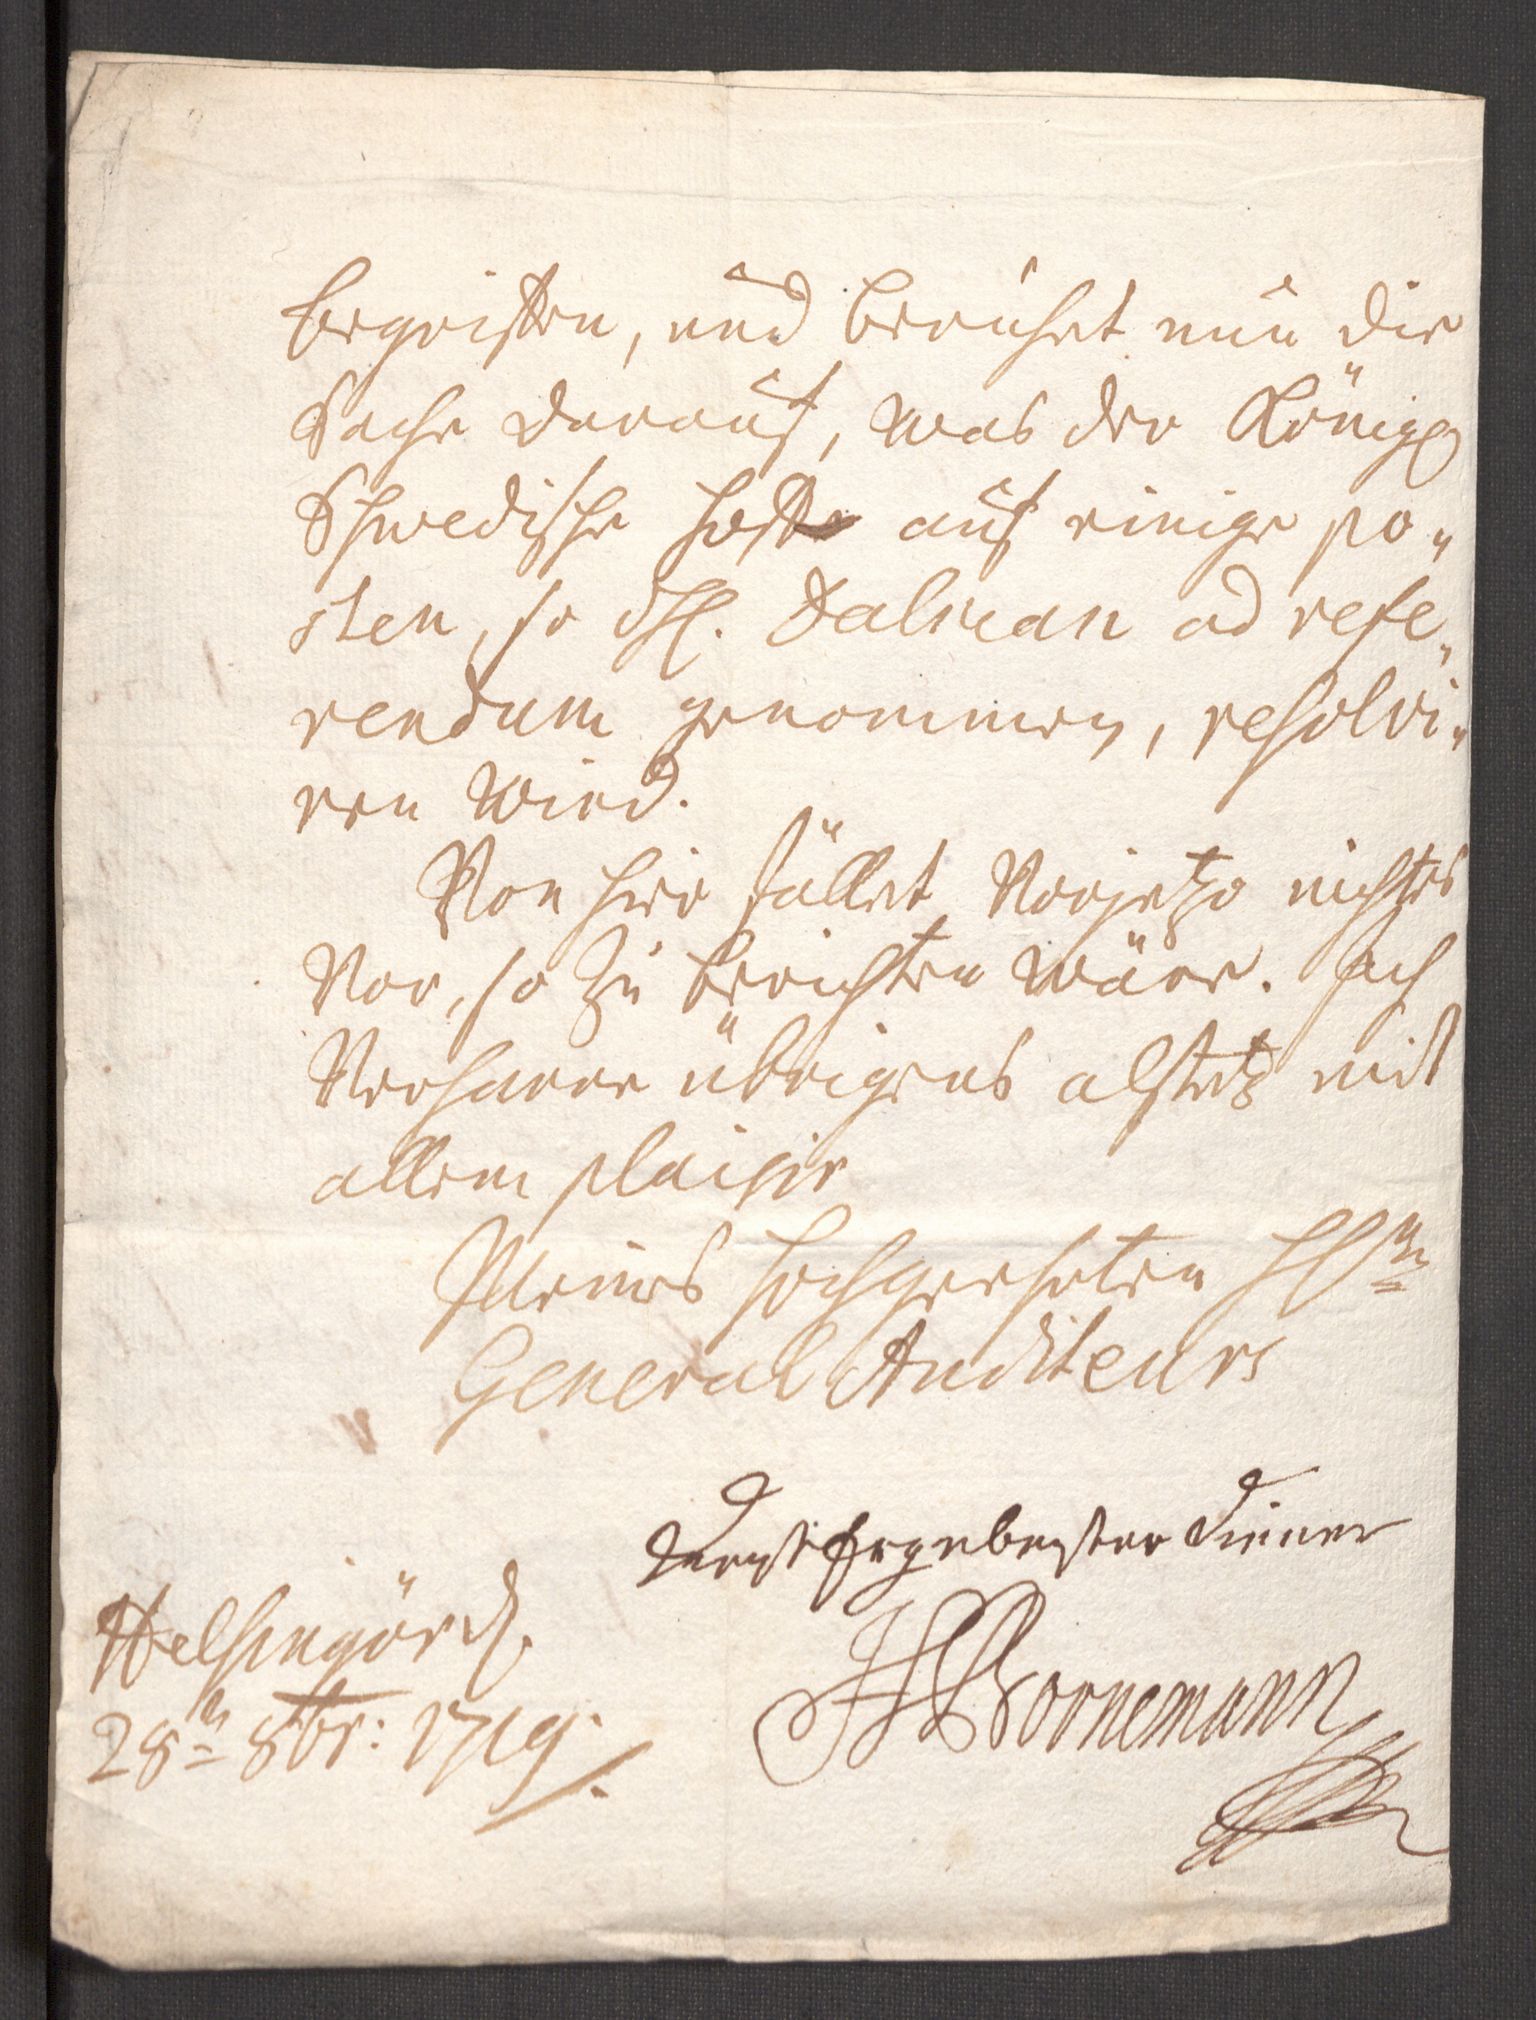 begriffen, und beruhet nun die
Sache darauf, was der Königl.
Schwedische Hoff auf einige po-
sten, so H. Dalman ad refe-
rendum genommen, resolvi-
ren wird.
Von hier fället vorjetzo nichtes
vor, so zu berichten wäre. Ich
verharre übrigens alstetz mit
allem plaisir
Meines hochgeehrten H
General Auditeurs
Dienstergebenster Diener
HBornemann
Helsingör d.
28t 8br: 1719.